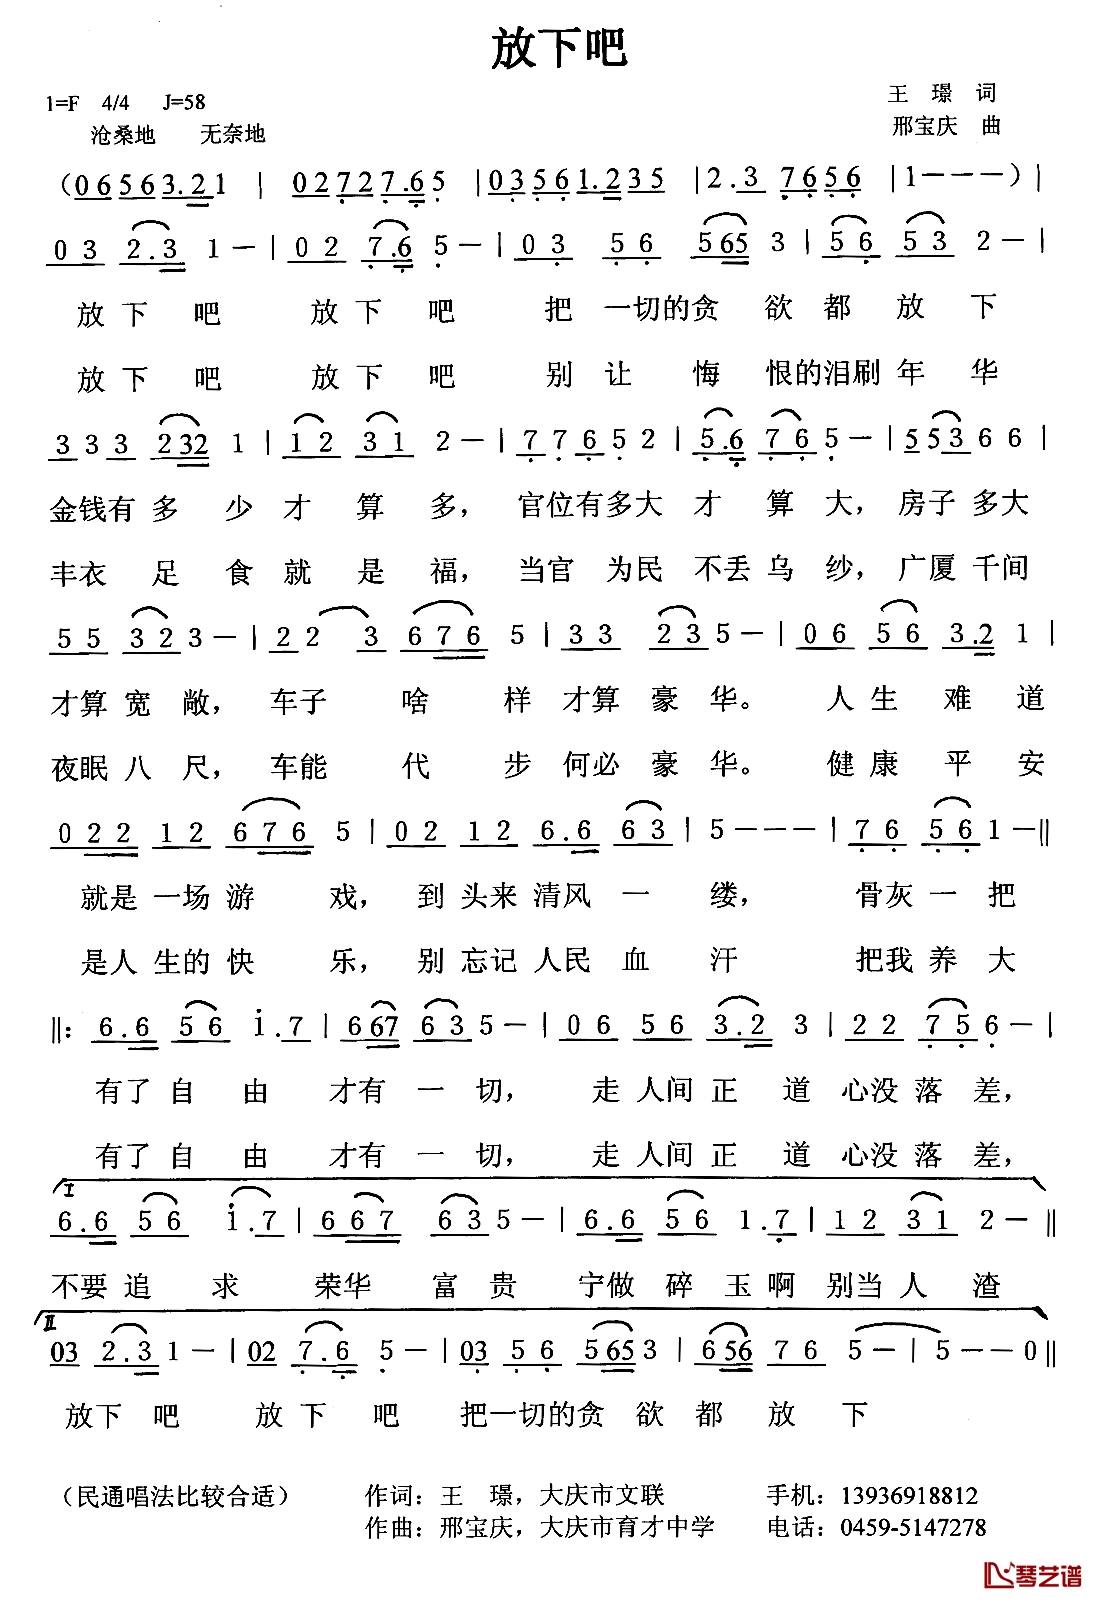 放下吧
1=F 4/4 J=58
王 璟 词
沧桑地 无奈地
邢宝庆 曲
(0 6 5 6 3.2 1 | 0 2 7 2 7.6 5 | 0 3 5 6 1.2 3 5 | 2.3 7 6 5 6 | 1 - - - ) |
0 3 2.3 1 - | 0 2 7.6 5 - | 0 3 5 6 5 6 5 3 | 5 6 5 3 2 - |
放 下 吧 放 下 吧 把 一切的贪 欲 都 放 下
放 下 吧 放 下 吧 别 让 悔 恨的泪刷 年 华
3 3 3 2 3 2 1 | 1 2 3 1 2 - | 7 7 6 5 2 | 5.6 7 6 5 - | 5 5 3 6 6 |
金钱有 多 少 才 算 多， 官位有多大 才 算 大，房子多大
丰衣 足 食 就 是 福， 当官 为民 不丢 乌 纱，广厦千间
5 5 3 2 3 - | 2 2 3 6 7 6 5 | 3 3 2 3 5 - | 0 6 5 6 3.2 1 |
才算 宽 敞， 车子 啥 样 才算 豪 华。 人 生 难 道
夜眠 八 尺， 车能 代 步 何必 豪 华。 健 康 平 安
0 2 2 1 2 6 7 6 5 | 0 2 1 2 6.6 6 3 | 5 - - - | 7 6 5 6 1 - ‖
就是 一场 游 戏， 到 头来 清风 一 缕， 骨灰 一 把
是人 生的 快 乐， 别 忘记 人民 血 汗 把我 养 大
‖: 6.6 5 6 i.7 | 6 6 7 6 3 5 - | 0 6 5 6 3.2 3 | 2 2 7 5 6 - |
有了 自 由 才有 一 切， 走 人间 正 道 心没 落 差，
有了 自 由 才有 一 切， 走 人间 正 道 心没 落 差，
I
6.6 5 6 i.7 | 6 6 7 6 3 5 - | 6.6 5 6 1.7 | 1 2 3 1 2 - ‖
不要 追 求 荣华 富 贵 宁做 碎 玉啊 别当 人 渣
II
03 2.3 1 - | 02 7.6 5 - | 03 5 6 5 6 5 3 | 6 5 6 7 6 5 - | 5 - - 0 ‖
放下 吧 放 下 吧 把一切的贪 欲 都 放 下
（民通唱法比较合适） 作词：王 璟，大庆市文联 手机：13936918812
作曲：邢宝庆，大庆市育才中学 电话：0459-5147278
琴艺谱